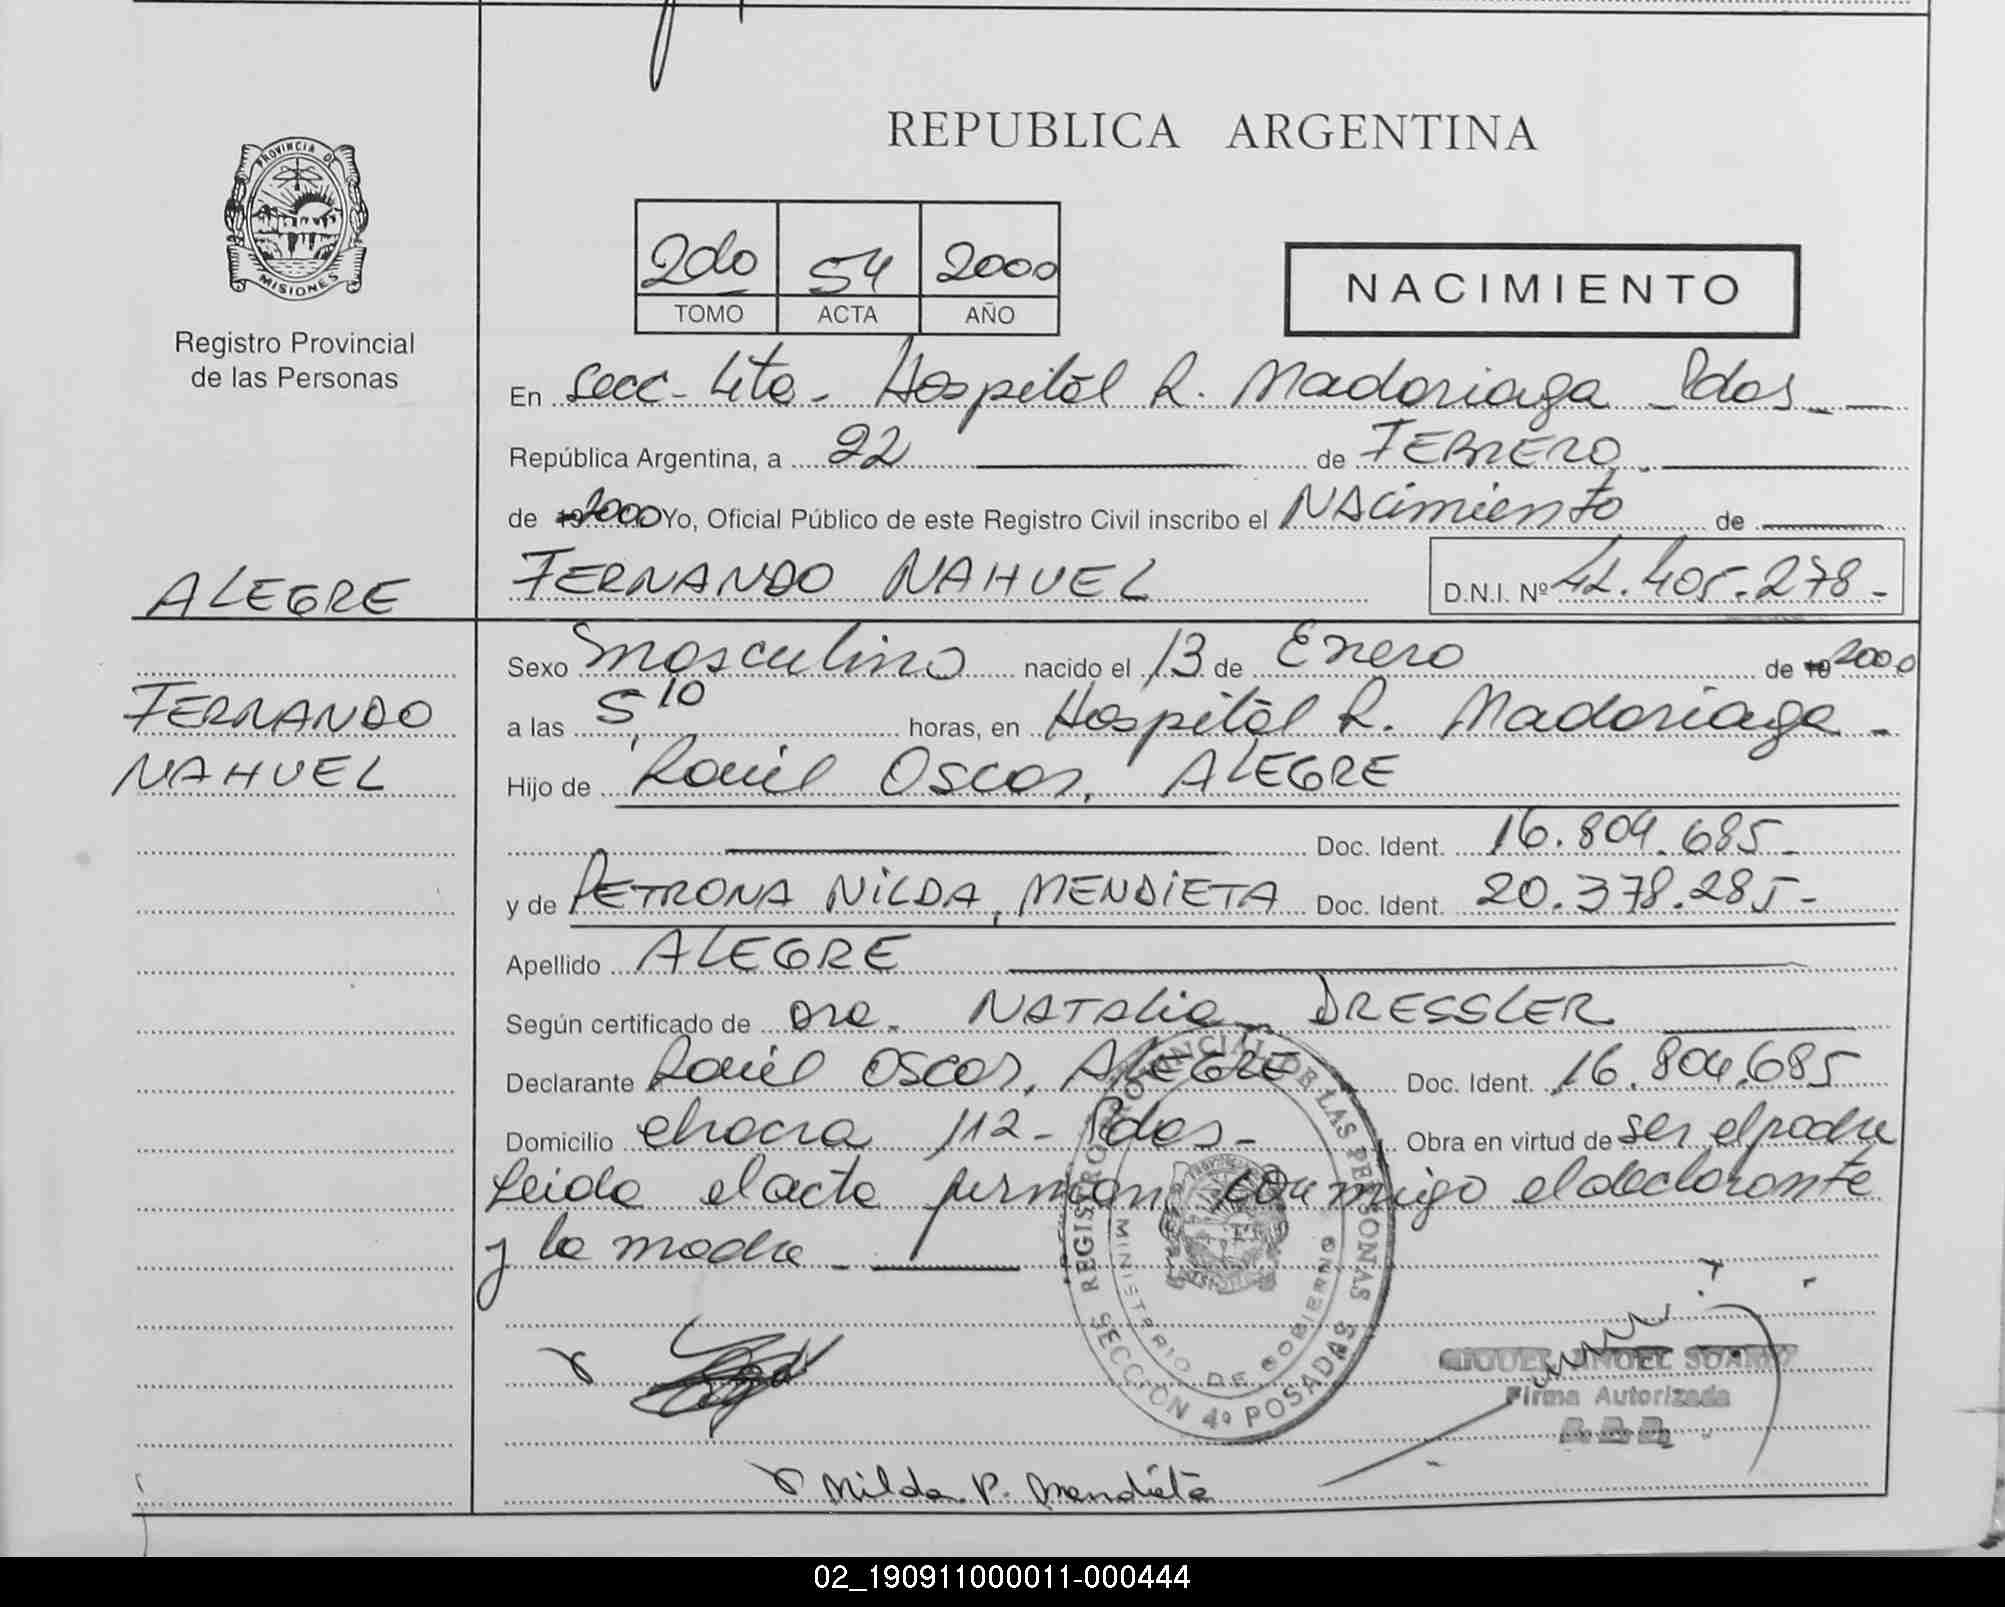 REPUBLICA ARGENTINA
PROVINCIA DE
MISIONES
Registro Provincial
de las Personas
2do 54 2000
TOMO ACTA AÑO
NACIMIENTO
En Secc- 4ta- Hospital R. Madariaga - Pdas -
República Argentina, a 22 de FEBRERO.
de 2000 Yo, Oficial Público de este Registro Civil inscribo el NAcimiento de
ALEGRE
FERNANDO NAHUEL D.N.I. Nº 42.405.278-
FERNANDO
NAHUEL
Sexo masculino nacido el 13 de Enero de 19 2000
a las 5,10 horas, en Hospital R. Madariaga -
Hijo de Raúl Oscar, ALEGRE
Doc. Ident. 16.804.685-
y de PETRONA NILDA, MENDIETA Doc. Ident. 20.378.285-
Apellido ALEGRE
Según certificado de Dra. NATAliA DRESSLER
Declarante Raúl Oscar, ALEGRE Doc. Ident. 16.804.685
Domicilio chacra 112- Pdas- Obra en virtud de ser el padre
Leida el acta firman conmigo el declarante
y la madre -
REGISTRO PROVINCIAL DE LAS PERSONAS
SECCION 4º POSADAS
MINISTERIO DE GOBIERNO
MIGUEL ANGEL
Firma Autorizada
Nilda P. Mendieta
02_190911000011-000444